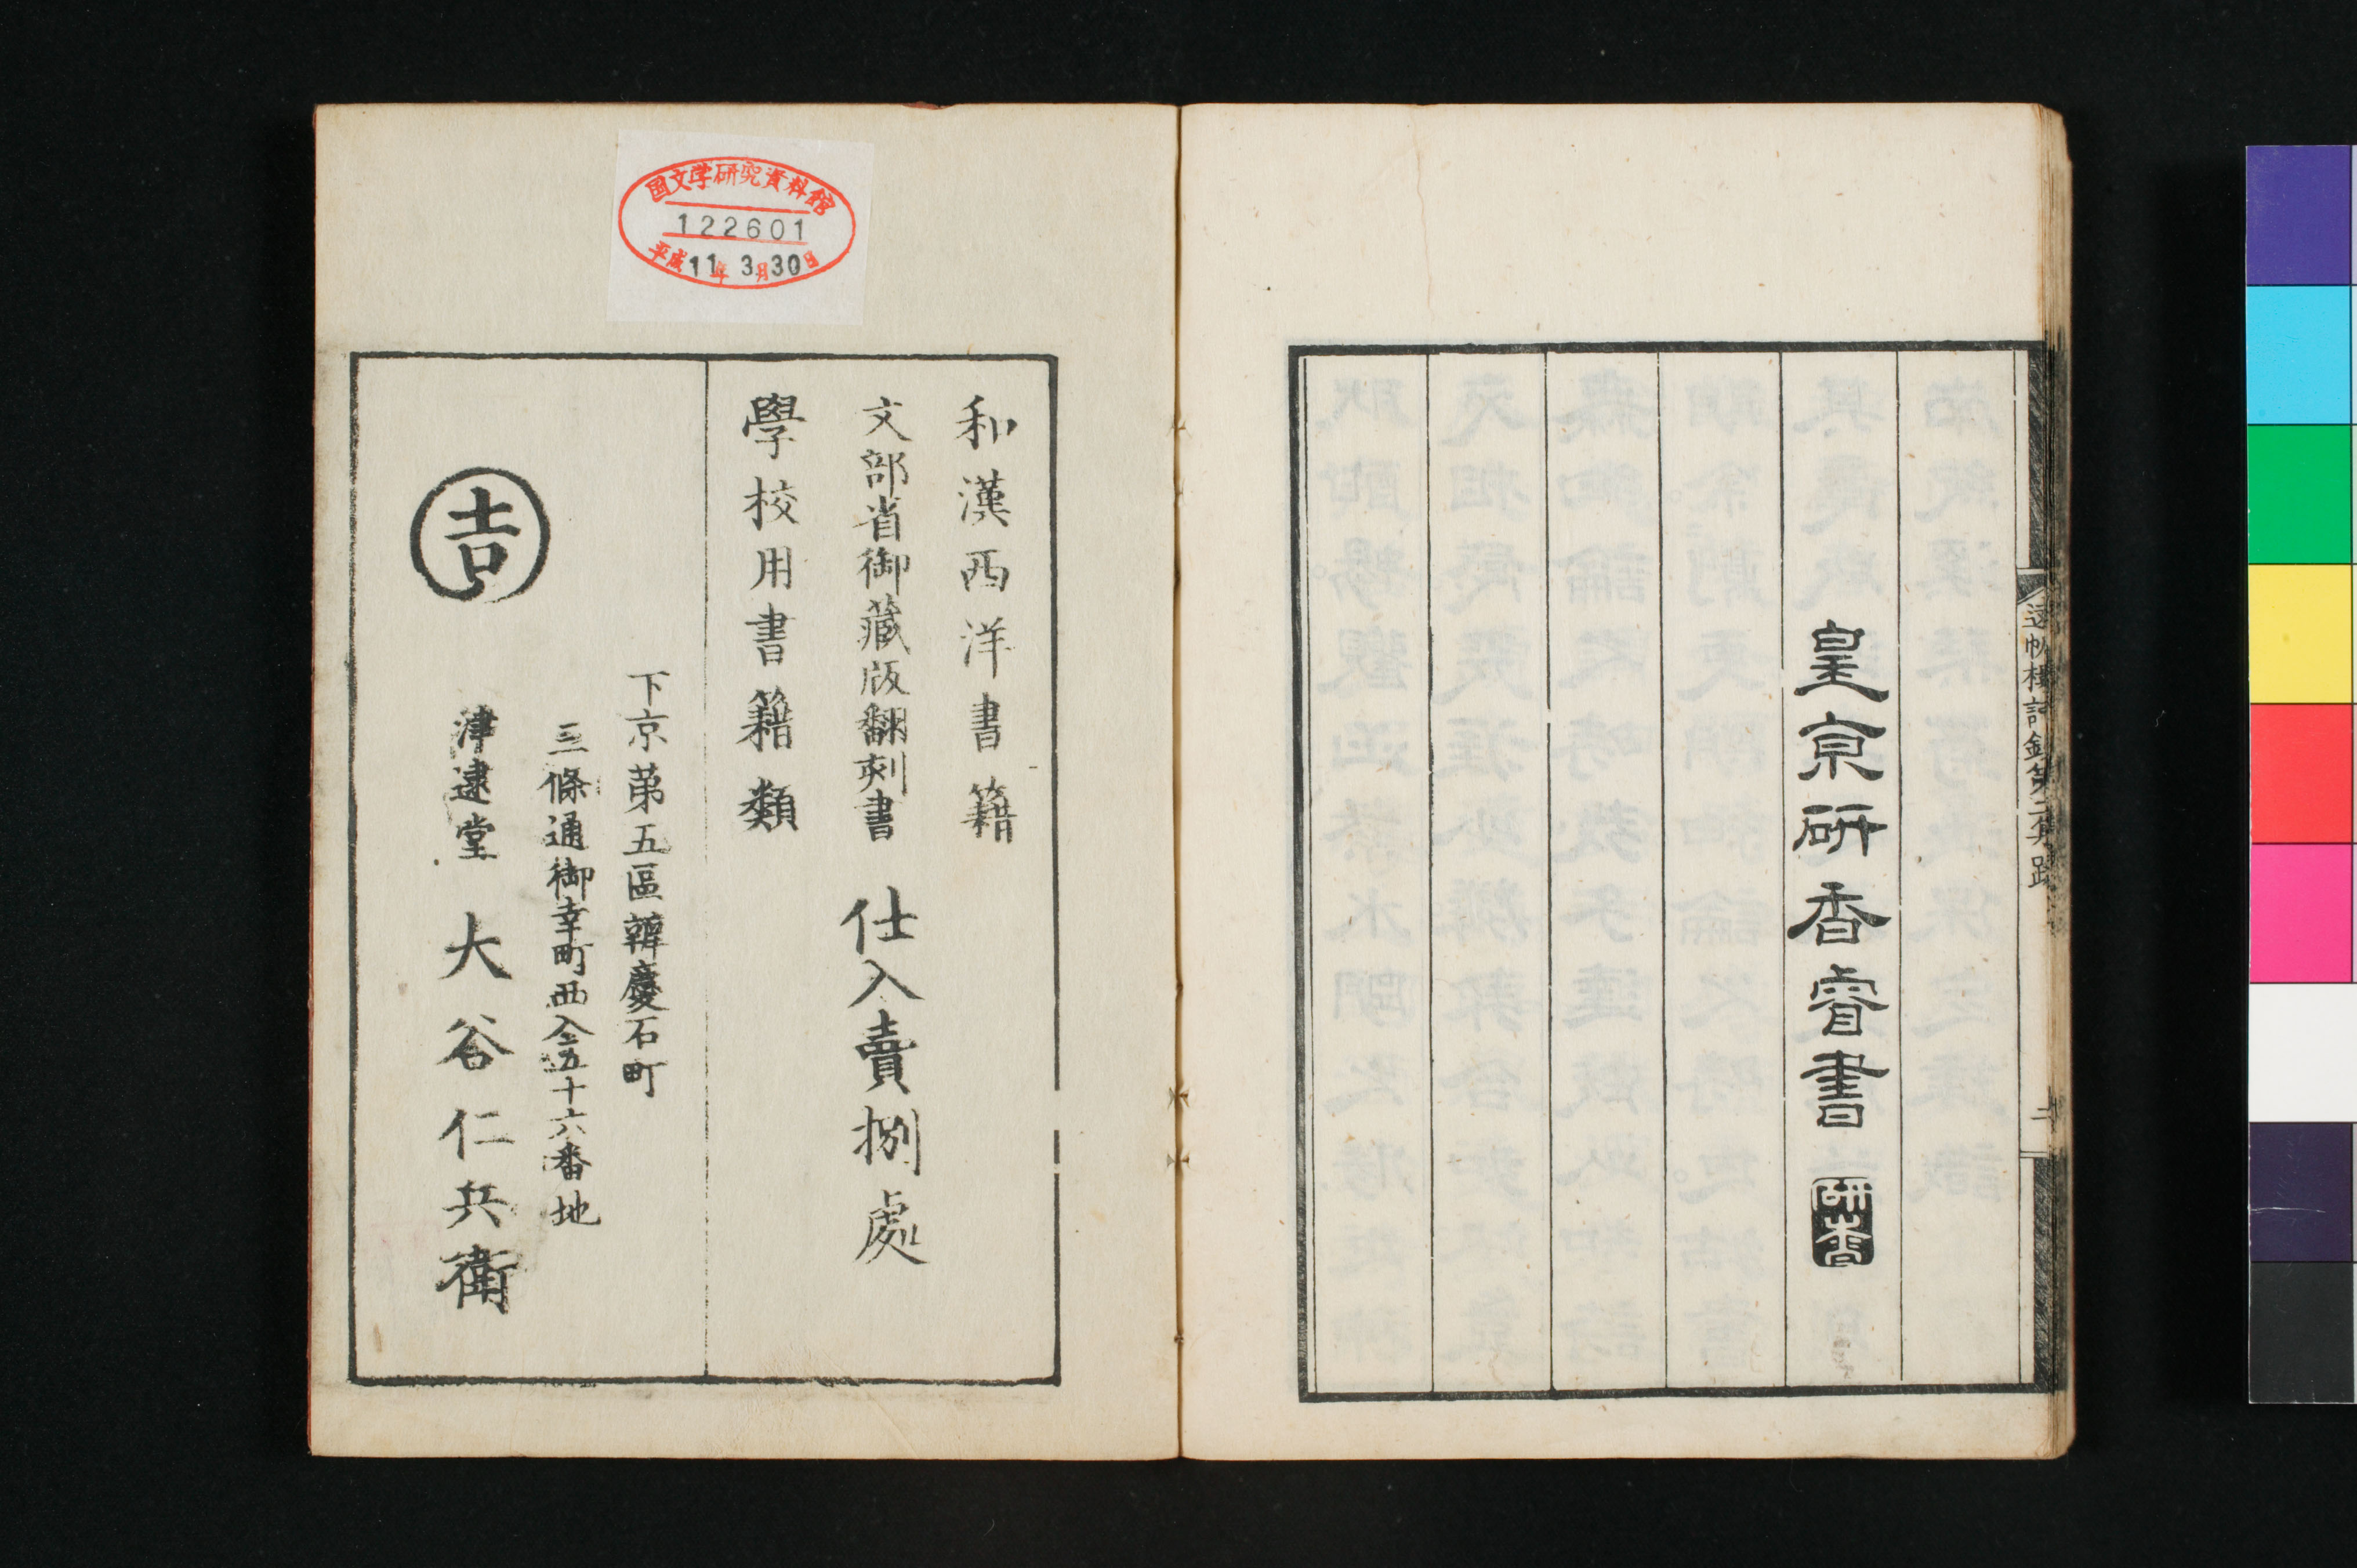 皇京研香睿書
研香
二
和漢西洋書籍
文部省御藏版翻刻書
學校用書籍類
仕入賣捌處
下京第五區辨慶石町
三條通御幸町西入五十六番地
吉
津逮堂 大谷仁兵衞
国文学研究資料館
122601
平成11年3月30日